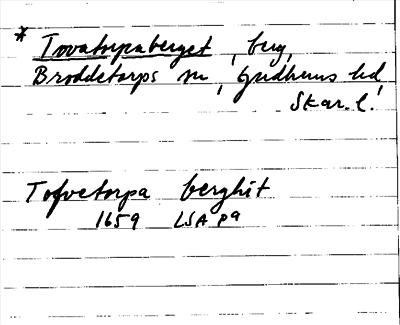 * Tovatorpaberget, berg,
Broddetorps sn, Gudhems hd
Skar. l.
Tofvetorpa berghit
1659 LSA P9